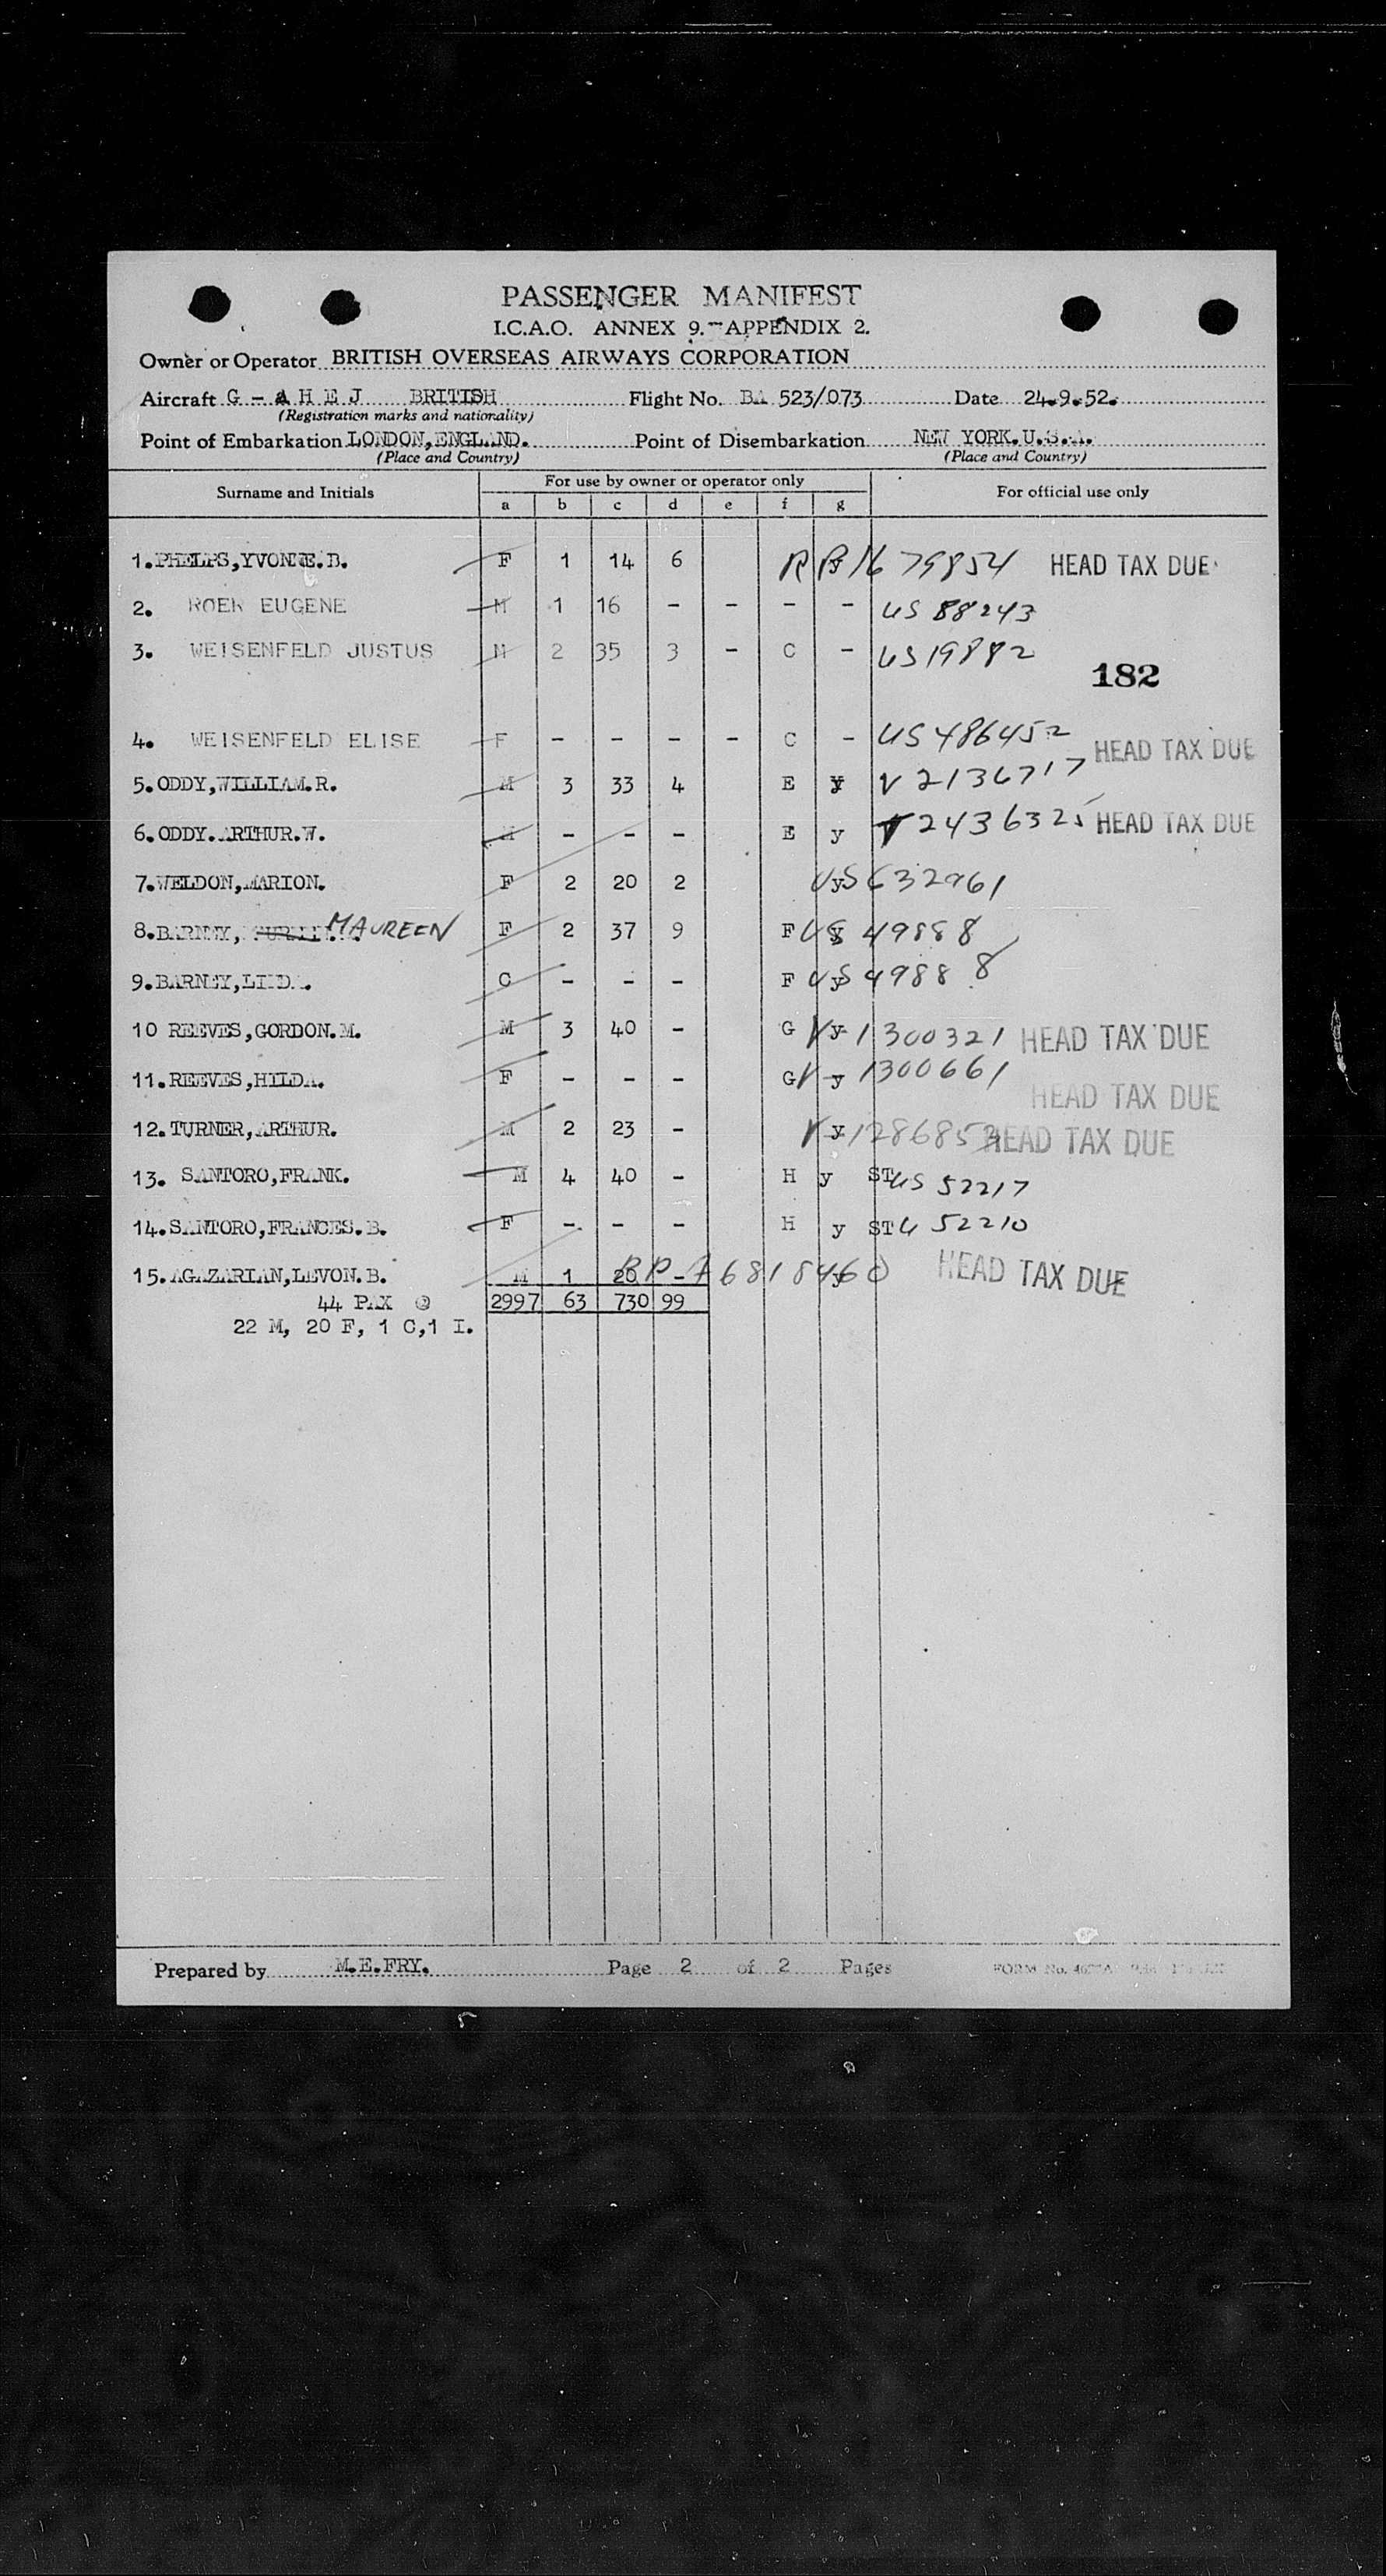 PASSENGER MANIFEST
I.C.A.O. ANNEX 9.—APPENDIX 2.
Owner or Operator BRITISH OVERSEAS AIRWAYS CORPORATION
Aircraft G - A H E J BRITISH Flight No. BA 523/073 Date 24.9.52.
(Registration marks and nationality)
Point of Embarkation LONDON,ENGLAND. Point of Disembarkation NEW YORK.U.S.A.
(Place and Country) (Place and Country)
Surname and Initials For use by owner or operator only For official use only
a b c d e f g
1.PHELPS,YVONNE.B. F 1 14 6 HEAD TAX DUE
2. ROER EUGENE M 1 16 - - - - US 88243
3. WEISENFELD JUSTUS M 2 35 3 - C - US 19882
182
4. WEISENFELD ELISE F - - - - C - US 486452 HEAD TAX DUE
5.ODDY,WILLIAM.R. M 3 33 4 E y V 2136717
6.ODDY.ARTHUR.W. M - - - E y V 2436325 HEAD TAX DUE
7.WELDON,MARION. F 2 20 2 y US 632961
8.BARNEY, MAUREEN F 2 37 9 F y US 49888
9.BARNEY,LINDA. C - - - F y US 49888
10 REEVES,GORDON.M. M 3 40 - G y V 1300321 HEAD TAX DUE
11.REEVES,HILDA. F - - - G y V 1300661
HEAD TAX DUE
12.TURNER,ARTHUR. M 2 23 - y V HEAD TAX DUE
13. SANTORO,FRANK. M 4 40 - H y ST US 52217
14.SANTORO,FRANCES.B. F - - - H y ST U 52210
15.AGAZARIAN,LEVON.B. M 1 20 - y HEAD TAX DUE
44 PAX @ 2997 63 730 99
22 M, 20 F, 1 C,1 I.
Prepared by M.E.FRY. Page 2 of 2 Pages FORM No.